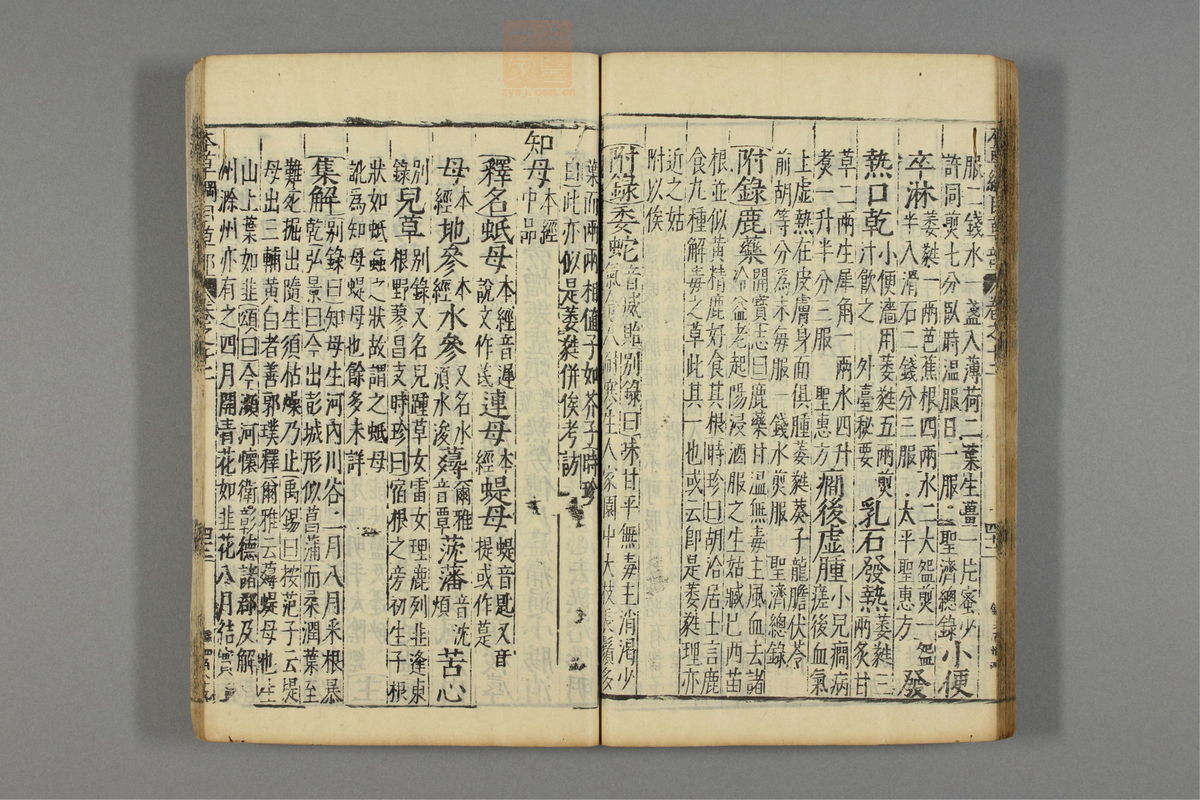 服二錢水一盞入薄荷二葉生薑一片蜜少
許同煎七分臥時溫服日一服 聖濟總錄 小便
卒淋萎蕤一兩芭蕉根四兩水二大盌煎一盌
半入滑石二錢分三服 太平聖惠方 發
熱口乾小便濇用萎蕤五兩煎
汁飲之 外臺秘要 乳石發熱萎蕤三
兩炙甘
草二兩生犀角一兩水四升
煮一升半分三服 聖惠方 癇後虛腫小兒癇病
瘥後血氣
上虛熱在皮膚身面俱腫萎蕤葵子龍膽伏苓
前胡等分爲末每服一錢水煎服 聖濟總錄
附錄鹿藥開寶志曰鹿藥甘溫無毒主風血去諸
冷益老起陽浸酒服之生姑臧已西苗
根並似黃精鹿好食其根時珍曰胡洽居士言鹿
食九種解毒之草此其一也或云卽是萎蕤理亦
近之姑
附以俟
附錄委蛇音威貽別錄曰味甘平無毒主消渴少
氣令人耐寒生人家園中大枝長鬚多
葉而兩兩相值子如芥子時珍
曰此亦似是萎蕤併俟考訪
知母本經
中品
釋名蚔母本經音遲
說文作芪 連母本
經 蝭母蝭音匙又音
提或作莡
貨母本
經 地參本
經 水參又名水
須水浚 䕭爾雅
音覃 茺藩音沈
煩 苦心
別
錄 兒草別錄又名兒踵草女雷女理鹿列韭逢東
根野蓼昌支時珍曰宿根之旁初生子根
狀如蚔蝱之狀故謂之蚔母
訛爲知母蝭母也餘多未詳
集解別錄曰知母生河內川谷二月八月采根暴
乾弘景曰今出彭城形似菖蒲而柔潤葉至
難死掘出隨生須枯燥乃止禹錫曰按范子云提
母出三輔黃白者善郭璞釋爾雅云䕭蝭母也生
山上葉如韭頌曰今瀕河懷衛彰德諸郡及解
州滁州亦有之四月開青花如韭花八月結實